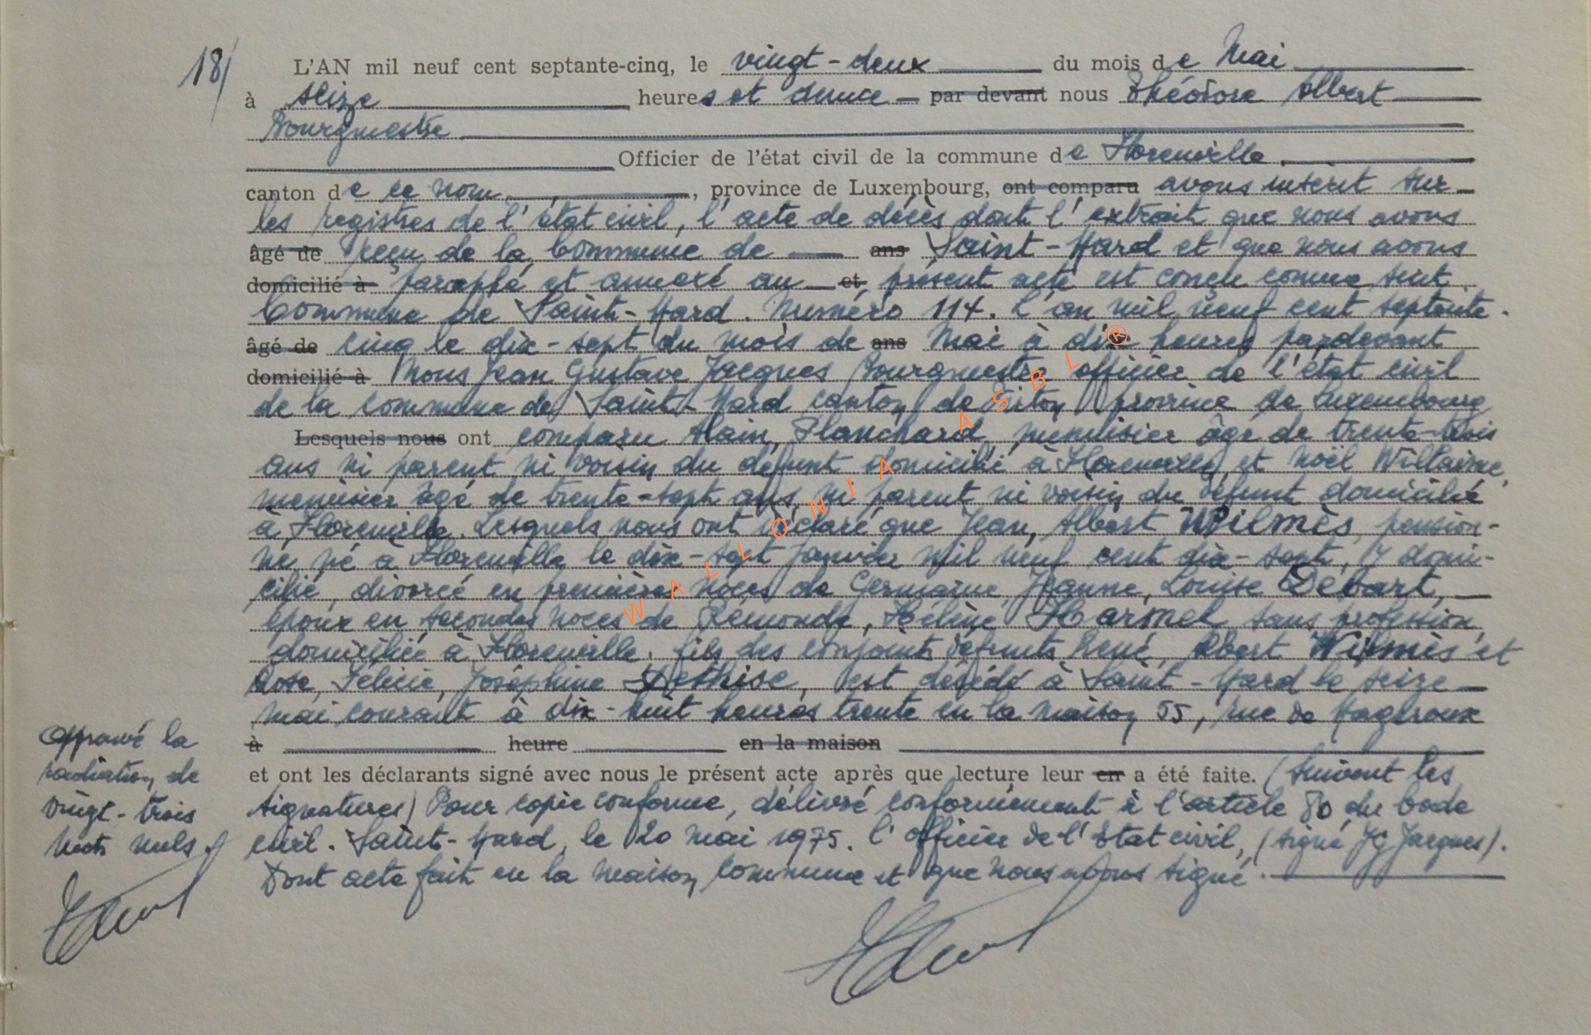 18/
L'AN mil neuf cent septante-cinq, le vingt-deux du mois de Mai
à seize heures et demie par devant nous Théodore Albert
Bourgmestre
Officier de l'état civil de la commune de Florenville
canton de ce nom, province de Luxembourg, ont comparu avons inscrit sur
les registres de l'état civil, l'acte de décès dont l'extrait que nous avons
âgé de reçu de la Commune de ans Saint-Mard et que nous avons
domicilié à paraphé et annexé au et présent acte est conçu comme suit
Commune de Saint-Mard. Numéro 114. L'an mil neuf cent septante-
âgé de cinq le dix-sept du mois de ans Mai à dix heures pardevant
domicilié à Nous Jean Gustave Jacques Bourgmestre officier de l'état civil
de la commune de Saint-Mard canton de Virton province de Luxembourg
Lesquels nous ont comparu Alain, Planchard, menuisier âgé de trente-trois
ans ni parent ni voisin du défunt domicilié à Florenville et Noël Wiltaime,
menuisier âgé de trente-sept ans, ni parent ni voisin du défunt domicilié
à Florenville. Lesquels nous ont déclaré que Jean, Albert Wilmès, pension-
né, né à Florenville le dix-sept janvier mil neuf cent dix-sept, y domi-
cilié, divorcé en premières noces de Germaine, Jeanne, Louise Debart,
époux en secondes noces de Rémonde, Hélène Harmel sans profession,
domiciliée à Florenville. fils des conjoints défunts René, Albert Wilmès et
Rose, Félicie, Joséphine Dethise, est décédé à Saint-Mard le seize
mai courant à dix-huit heures trente en la maison 55, rue de Hageroux
à heure en la maison
et ont les déclarants signé avec nous le présent acte après que lecture leur en a été faite. (suivent les
signatures) Pour copie conforme, délivré conformément à l'article 80 du Code
civil. Saint-Mard, le 20 mai 1975. l'officier de l'Etat civil, (signé JG Jacques).
Dont acte fait en la maison commune et que nous avons signé.
Approuvé la
radiation de
vingt-trois
mots nuls.
WALLONIA ASBL ®